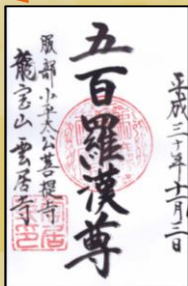 平成三十年十二月三日
五百羅漢尊
服部小平太公菩提寺
龍宝山雲居寺